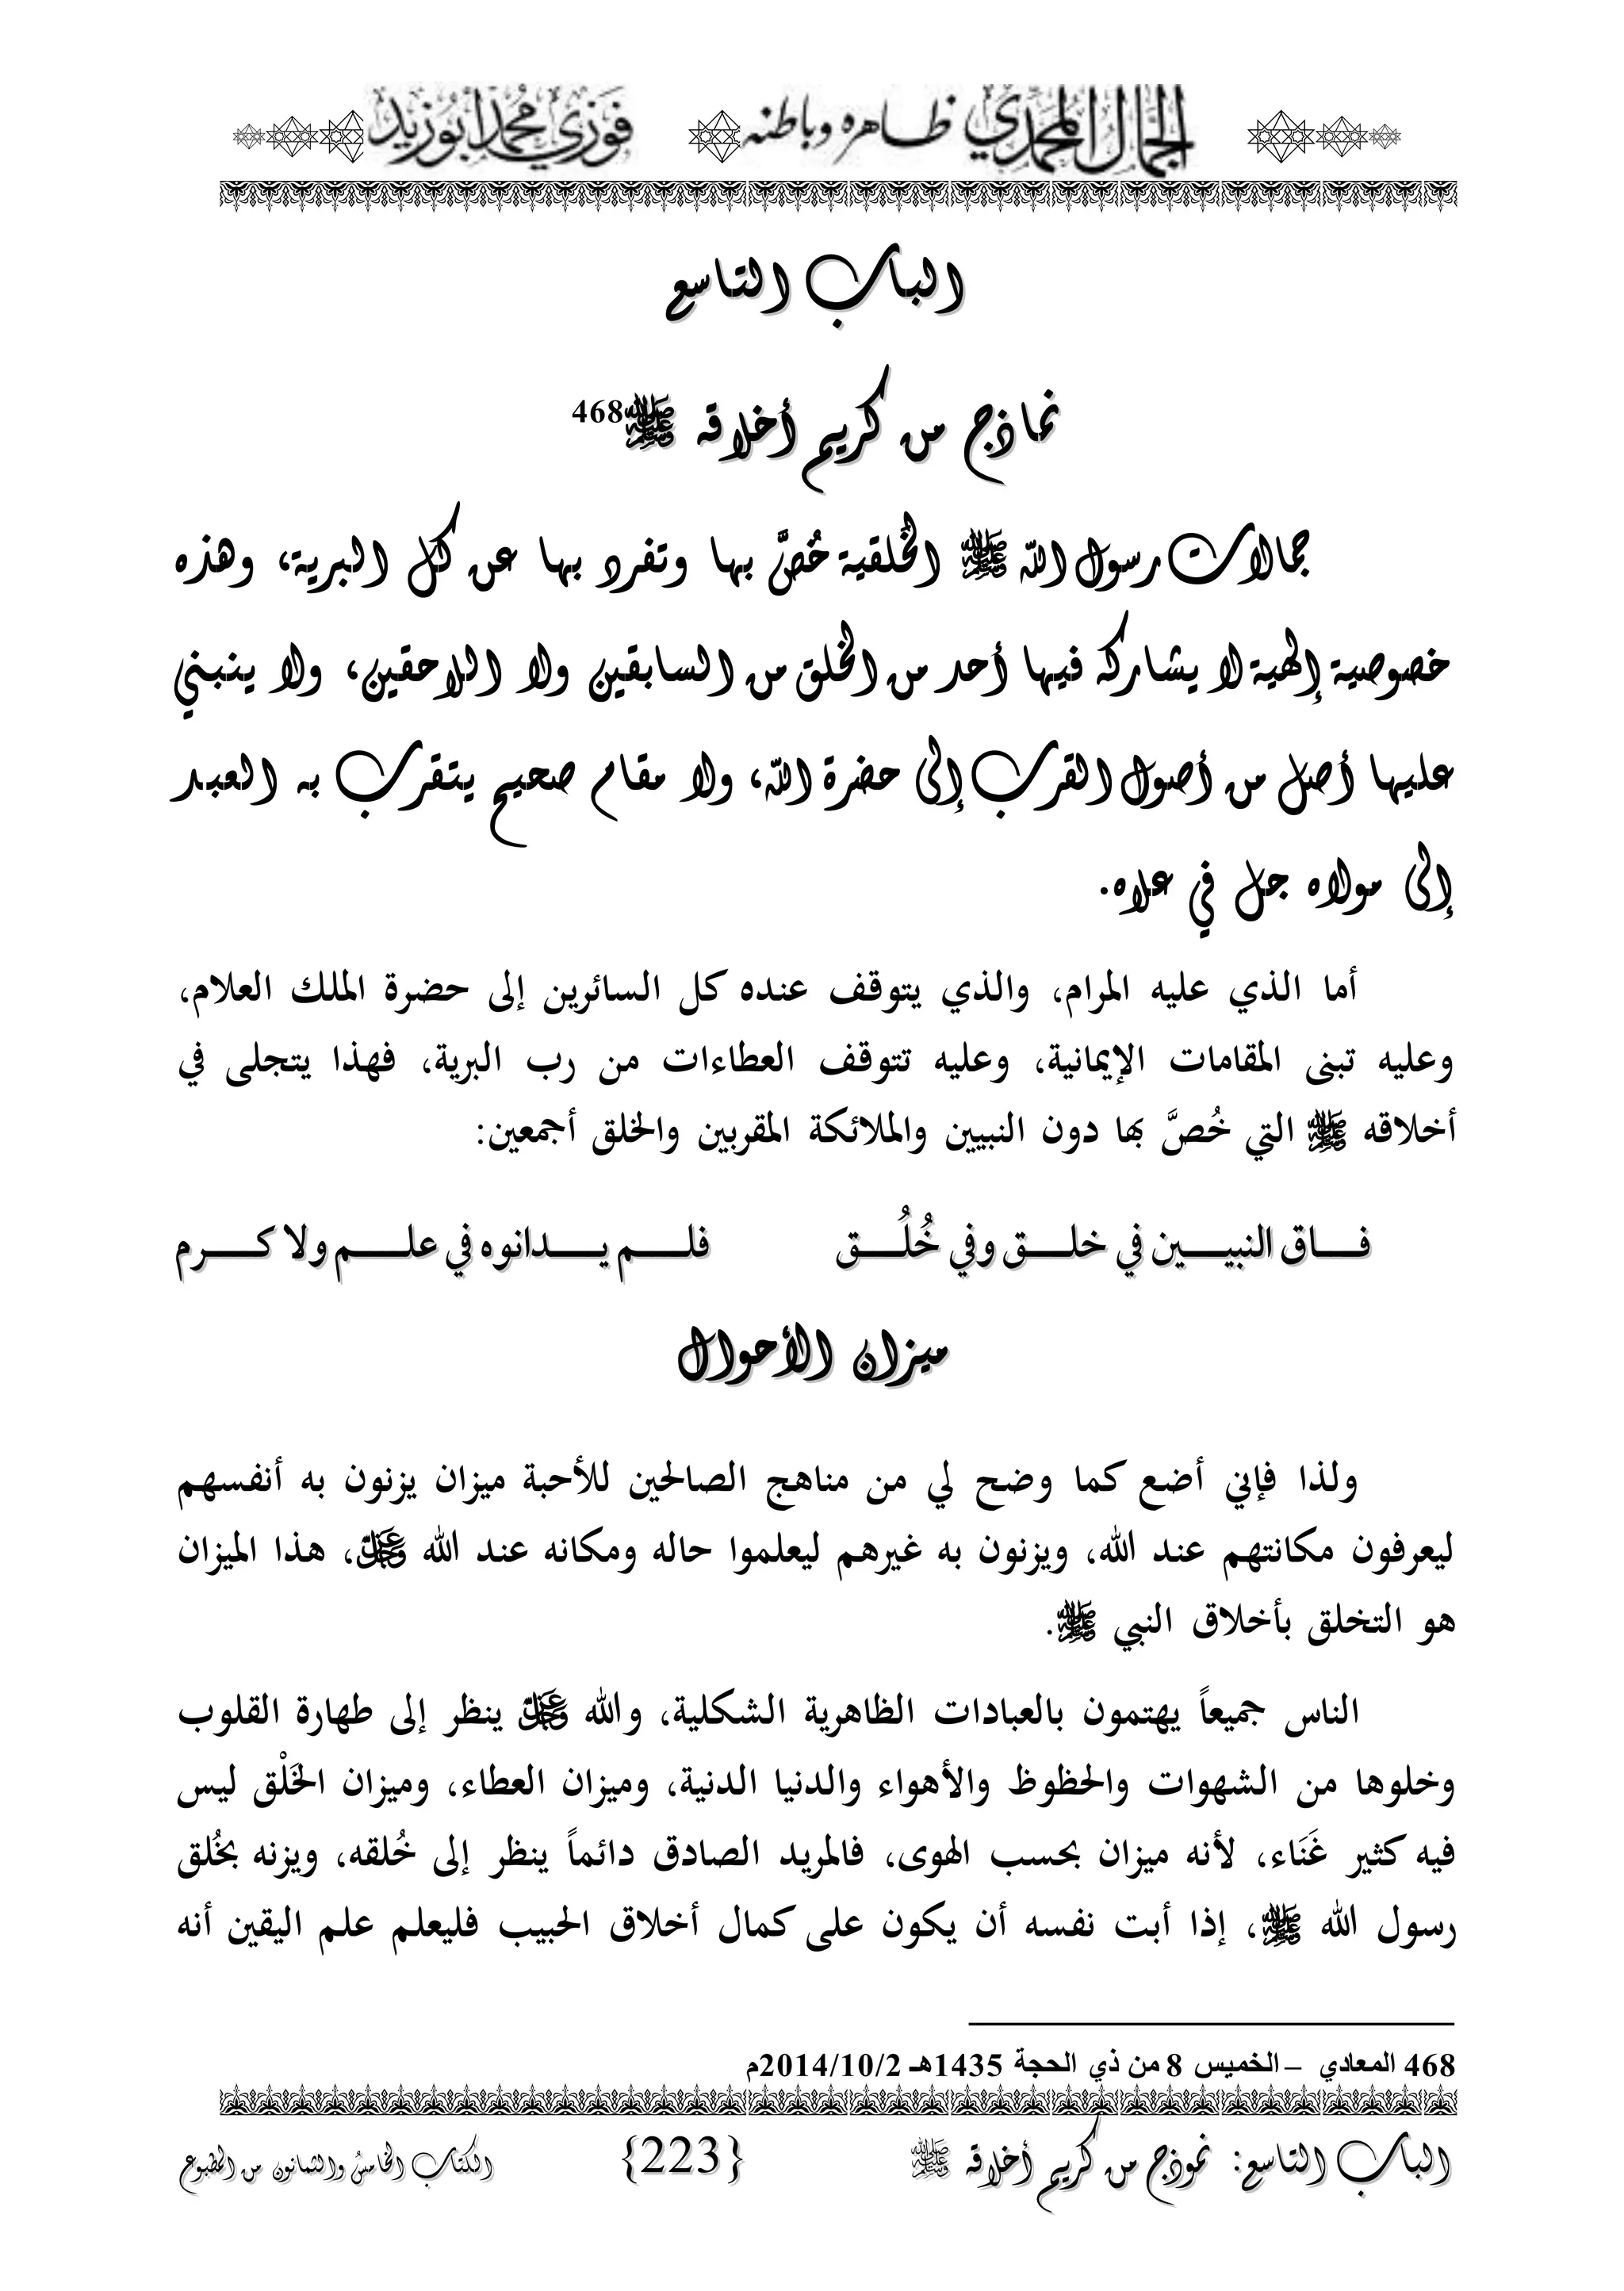 الجمال المحمدي ظاهره وباطنه فوزي محمد أبوزيد
الباب التاسع
نماذج من كريم أخلاقه ﷺ468
جمالات رسول الله ﷺ الخلقية خُصَّ بها وتفرد بها عن كل البرية، وهذه
خصوصية إلهية لا يشاركه فيها أحد من الخلق من السابقين ولا اللاحقين، ولا ينبني
عليها أصل من أصول القرب إلى حضرة الله، ولا مقام صحيح يتقرب به العبد
إلى مولاه جل في علاه.
أما الذي عليه المرام، والذي يتوقف عنده كل السائرين إلى حضرة الملك العلام،
وعليه تبنى المقامات الإيمانية، وعليه تتوقف العطاءات من رب البرية، فهذا يتجلى في
أخلاقه ﷺ التي خُصَّ بها دون النبيين والملائكة المقربين والخلق أجمعين:
فـــاق النبيـــين في خلـــق وفي خُلُـــق فلـــم يـــدانوه في علـــم ولا كـــرم
ميزان الأحوال
ولذا فإني أضع كما وضح لي من مناهج الصالحين للأحبة ميزان يزنون به أنفسهم
ليعرفون مكانتهم عند الله، ويزنون به غيرهم ليعلموا حاله ومكانه عند الله عَزَّ وَجَلَّ، هذا الميزان
هو التخلق بأخلاق النبي ﷺ.
الناس جميعاً يهتمون بالعبادات الظاهرية الشكلية، والله عَزَّ وَجَلَّ ينظر إلى طهارة القلوب
وخلوها من الشهوات والحظوظ والأهواء والدنيا الدنية، وميزان العطاء، وميزان الخَلْق ليس
فيه كثير غَنَاء، لأنه ميزان بحسب الهوى، فالمريد الصادق دائماً ينظر إلى خُلقه، ويزنه بخُلق
رسول الله ﷺ، إذا أبت نفسه أن يكون على كمال أخلاق الحبيب فليعلم علم اليقين أنه
468 المعادي – الخميس 8 من ذي الحجة 1435هـ 2014/10/2م
الباب التاسع: نموذج من كريم أخلاقه ﷺ {223} الكتاب الخامسُ والثمانون من المطبوع